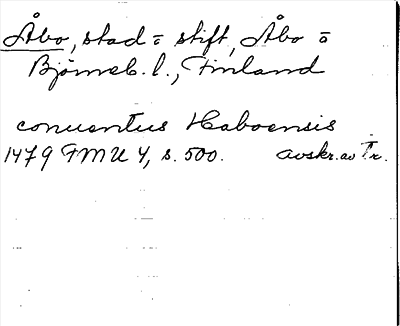 Åbo, stad o stift, Åbo o
Björneb. l., Finland
conventus Haboensis
1479 FMU 4, s. 500. avskr. av Tr.